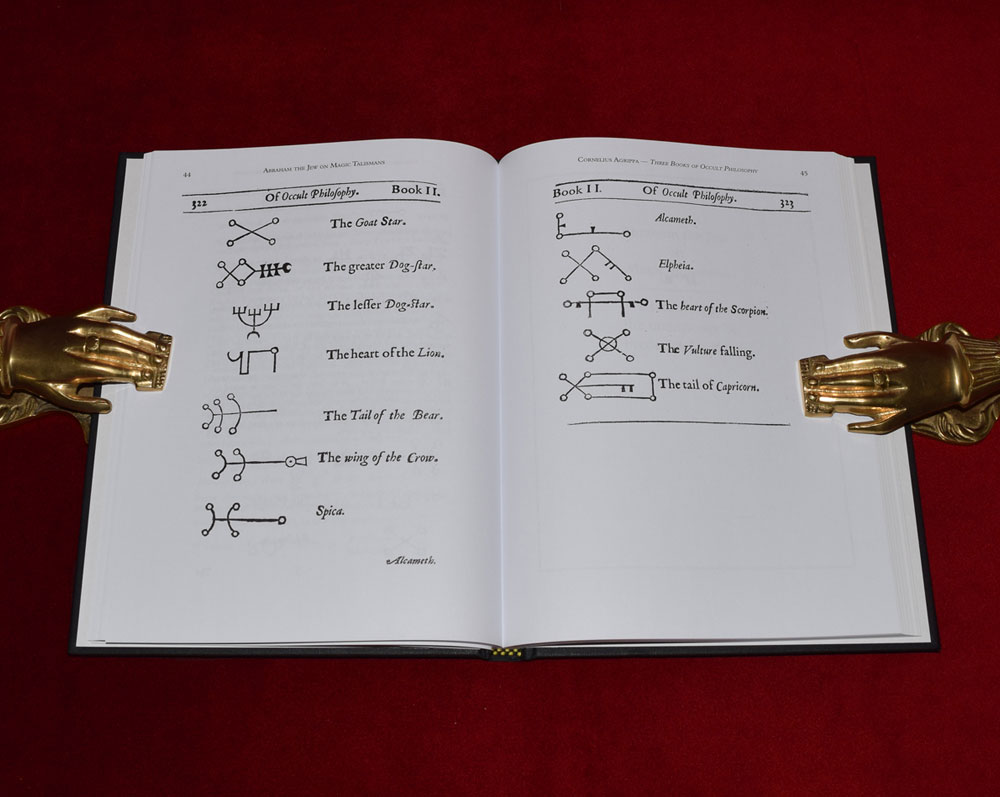 44
ABRAHAM THE JEW ON MAGIC TALISMANS
322 Of Occult Philoſophy. Book II.
The Goat Star.
The greater Dog-ſtar.
The leſſer Dog-ſtar.
The heart of the Lion.
The Tail of the Bear.
The wing of the Crow.
Spica.
Alcameth.
CORNELIUS AGRIPPA — THREE BOOKS OF OCCULT PHILOSOPHY
45
Book II. Of Occult Philoſophy. 323
Alcameth.
Elpheia.
The heart of the Scorpion.
The Vulture falling.
The tail of Capricorn.